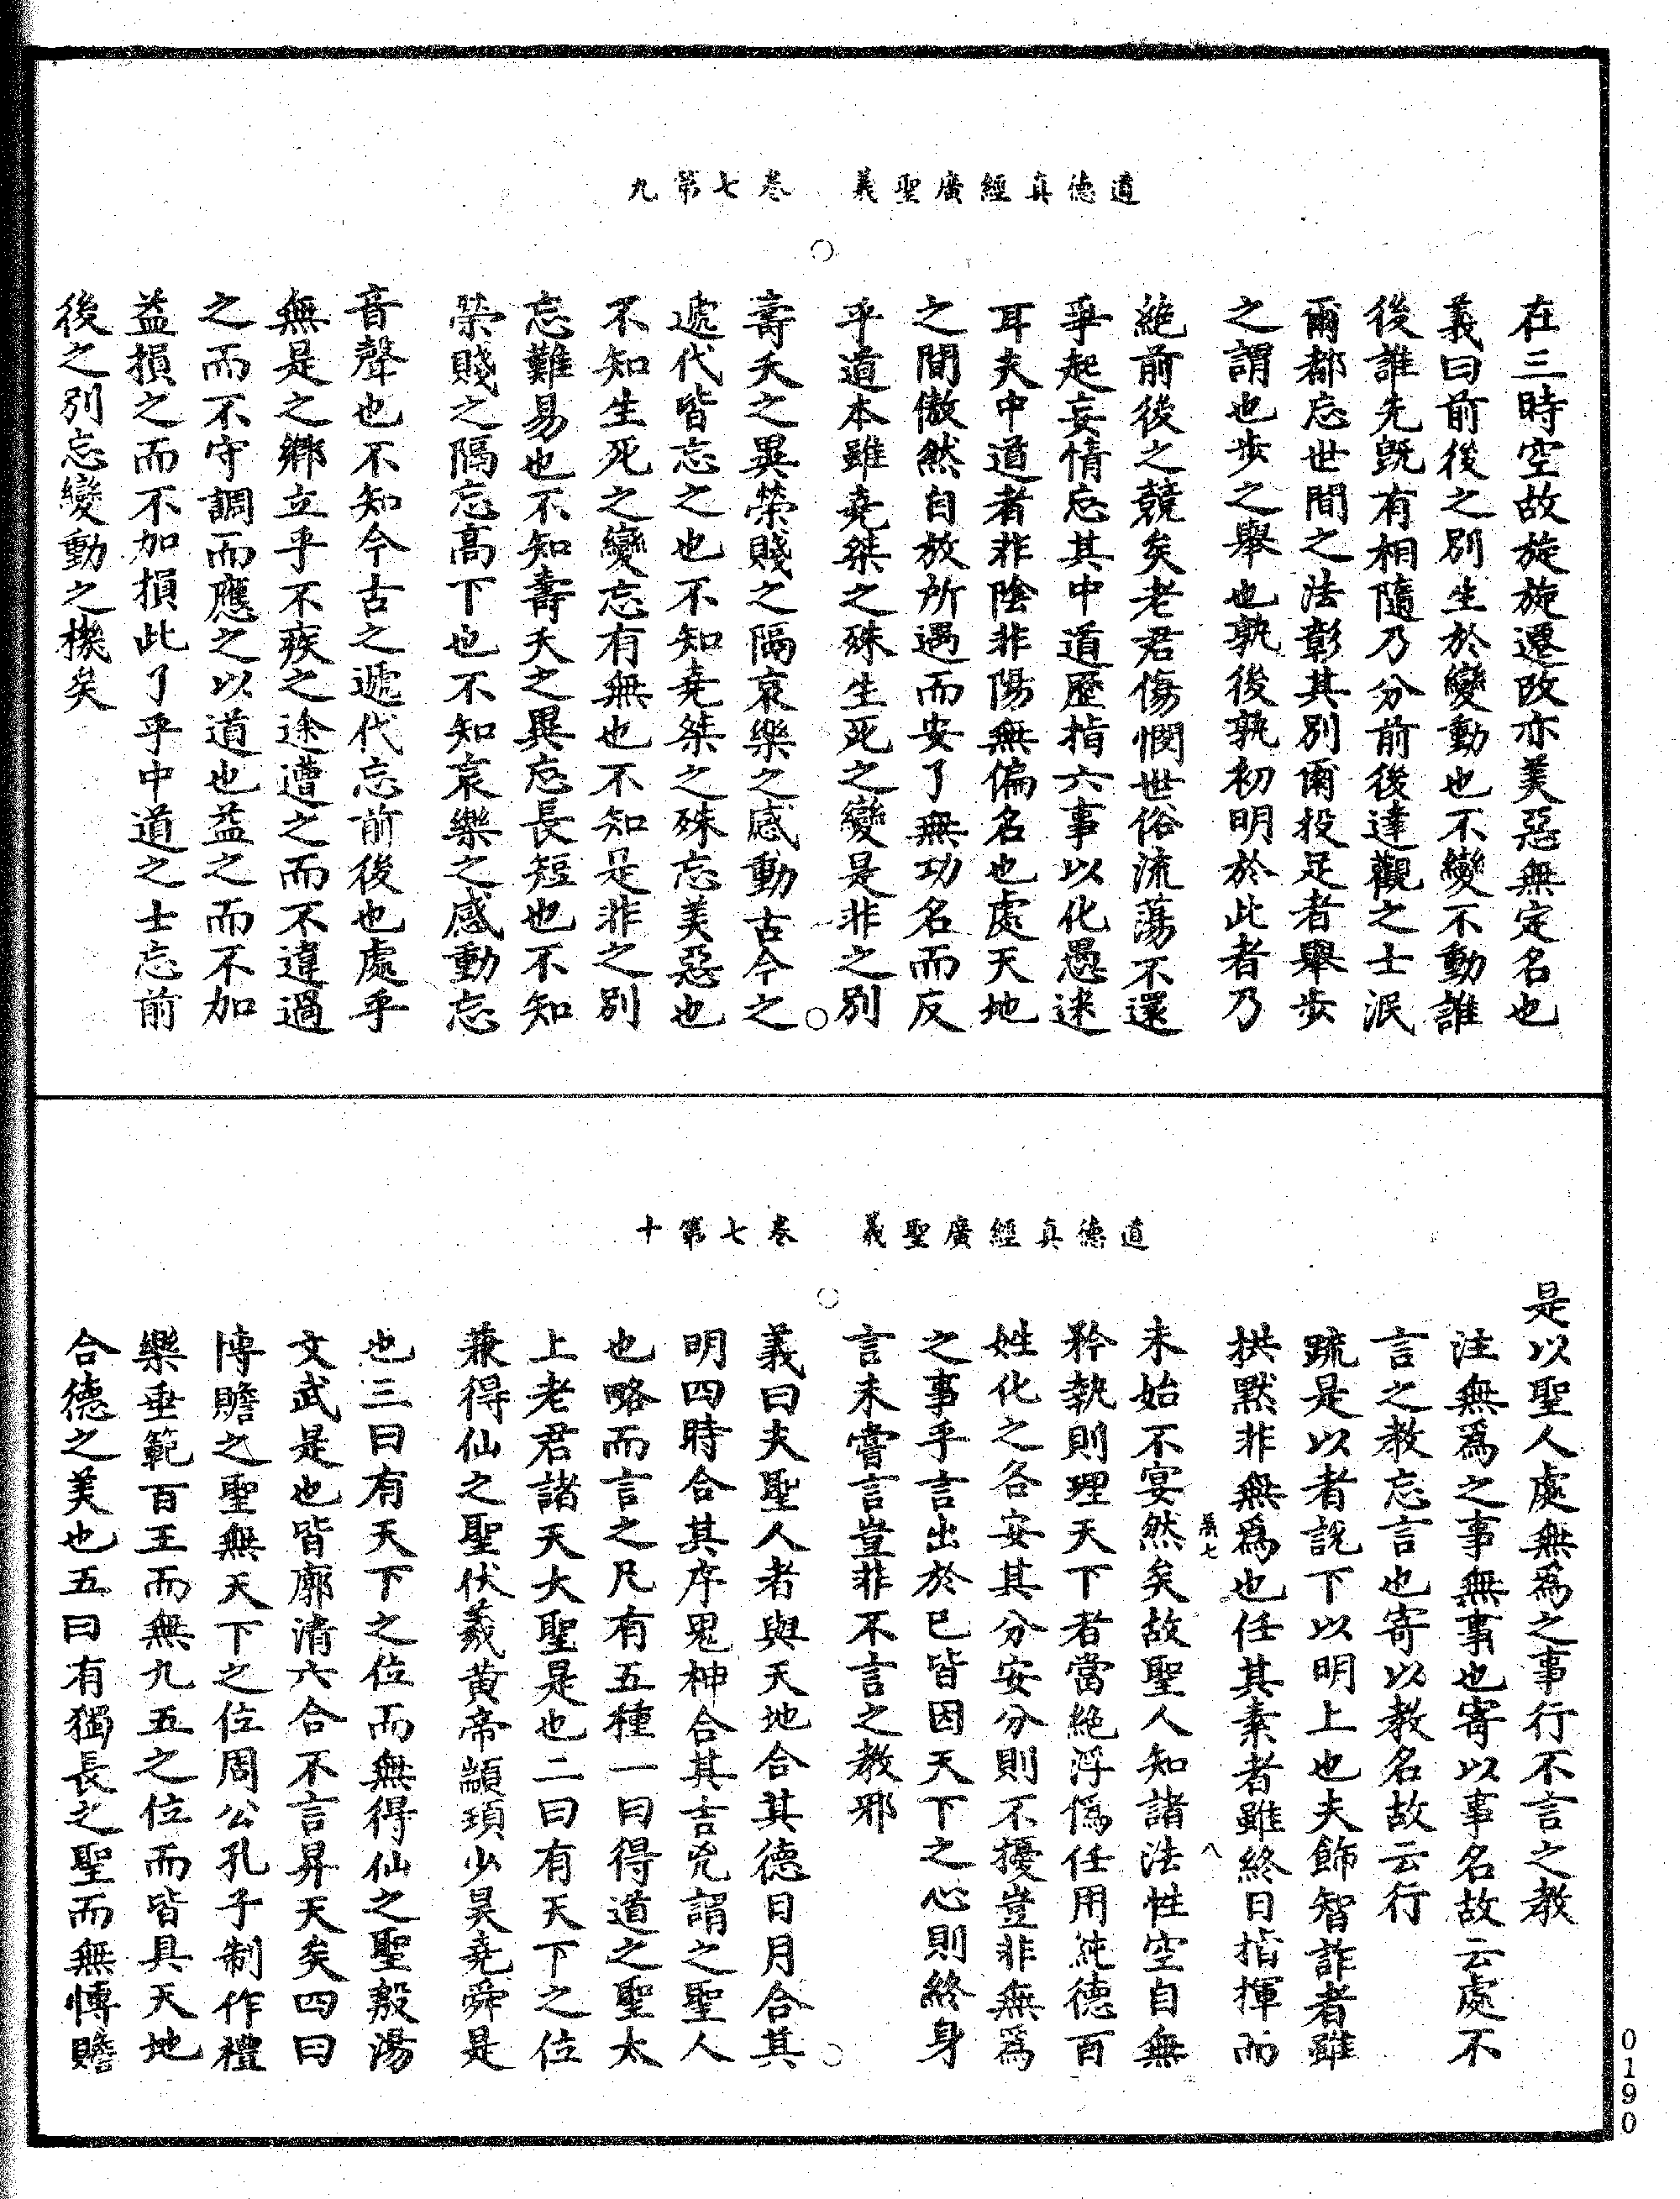 道德真經廣聖義　卷七第九
在三時空故旋旋遷改亦美惡無定名也
義曰前後之別生於變動也不變不動誰
後誰先旣有相隨乃分前後達觀之士泯
爾都忘世間之法彰其別爾投足者舉步
之謂也步之舉也孰後孰初明於此者乃
絶前後之競矣老君傷憫世俗流蕩不還
爭起妄情忘其中道歷指六事以化愚迷
耳夫中道者非陰非陽無偏名也處天地
之間傲然自放所遇而安了無功名而反
乎道本雖堯桀之殊生死之變是非之別
壽夭之異榮賤之隔哀樂之感動古今之
遞代皆忘之也不知堯桀之殊忘美惡也
不知生死之變忘有無也不知是非之別
忘難易也不知壽夭之異忘長短也不知
榮賤之隔忘高下也不知哀樂之感動忘
音聲也不知今古之遞代忘前後也處乎
無是之鄉立乎不疾之途遭之而不違過
之而不守調而應之以道也益之而不加
益損之而不加損此了乎中道之士忘前
後之別忘變動之機矣
道德真經廣聖義　卷七第十
是以聖人處無爲之事行不言之教
注無爲之事無事也寄以事名故云處不
言之教忘言也寄以教名故云行
䟽是以者說下以明上也夫飾智詐者雖
拱默非無爲也任其素者雖終日指揮而
羔七　八
未始不宴然矣故聖人知諸法性空自無
矜執則理天下者當絶浮僞任用純德百
姓化之各安其分安分則不擾豈非無爲
之事乎言出於已皆因天下之心則終身
言未嘗言豈非不言之教邪
義曰夫聖人者與天地合其德日月合其
明四時合其序鬼神合其吉兇謂之聖人
也略而言之凡有五種一曰得道之聖太
上老君諸天大聖是也二曰有天下之位
兼得仙之聖伏羲黄帝顓頊少昊堯舜是
也三曰有天下之位而無得仙之聖殷湯
文武是也皆廓清六合不言昇天矣四曰
博贍之聖無天下之位周公孔子制作禮
樂垂範百王而無九五之位而皆具天地
合德之美也五曰有獨長之聖而無博贍
0190